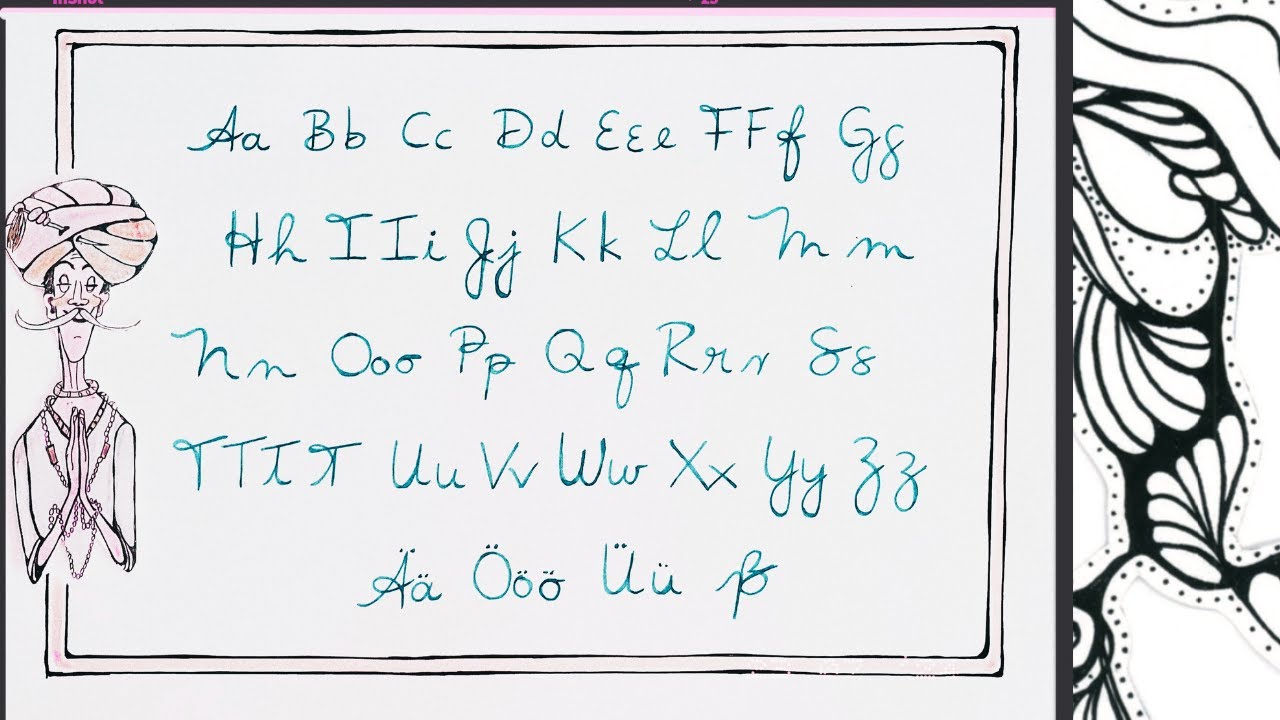 Aa Bb Cc Dd Eɛe FFf Gg
Hh IIi Jj Kk Ll Mm
Nn Ooo Pp Qq Rrr Ss
TTTT Uu Vv Ww Xx Yy Zz
Ää Ööö Üü ß